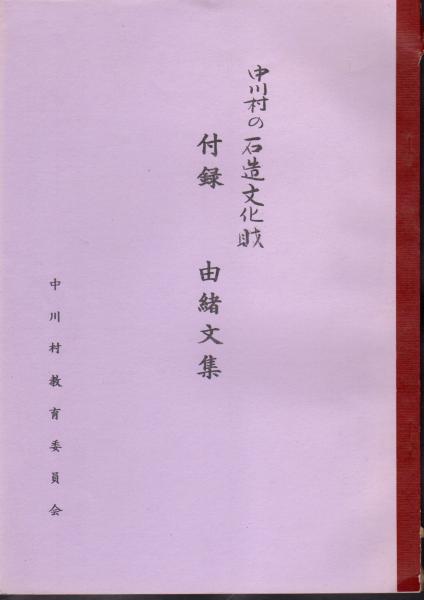 中川村の石造文化財
付録 由緒文集
中川村教育委員会